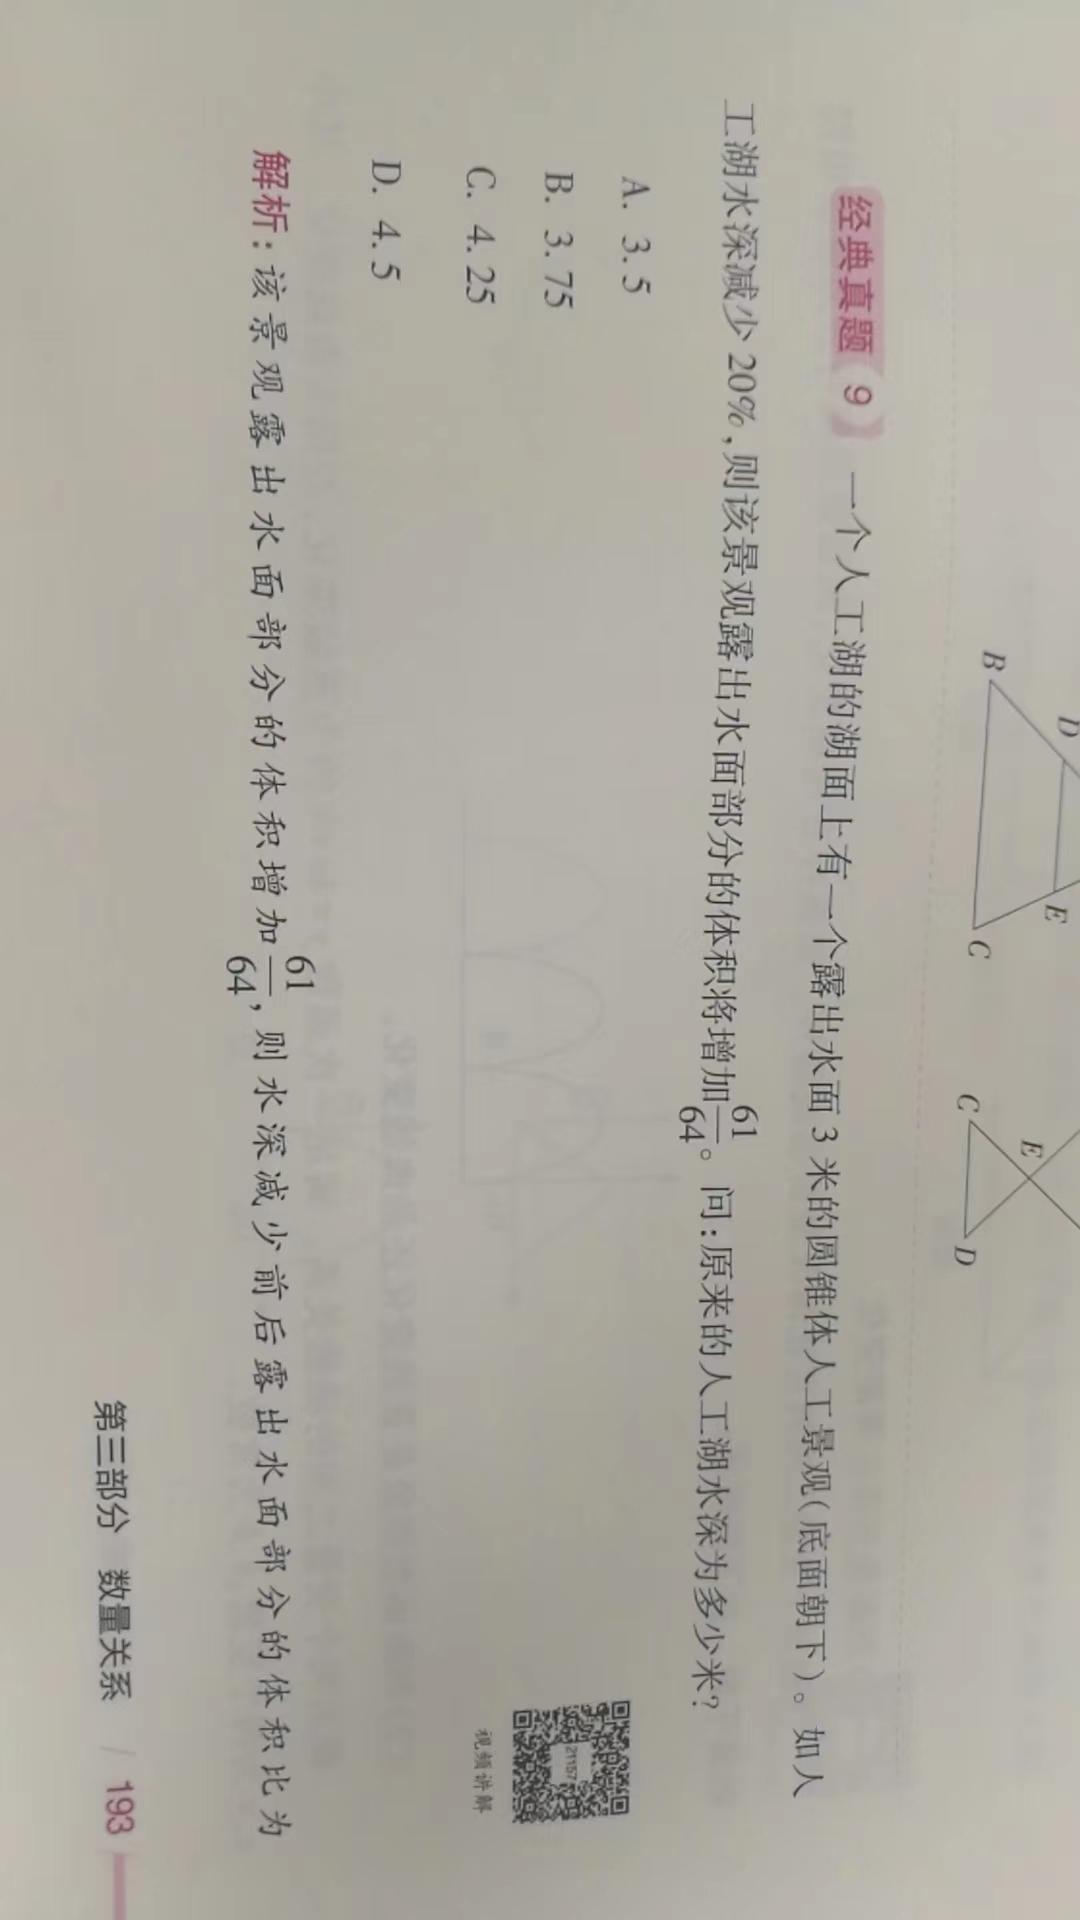 B
D
E
C
C
E
D
经典真题 9 一个人工湖的湖面上有一个露出水面 3 米的圆锥体人工景观(底面朝下)。如人
工湖水深减少 20%,则该景观露出水面部分的体积将增加61/64。问:原来的人工湖水深为多少米?
A. 3.5
B. 3.75
C. 4.25
D. 4.5
21157
视频讲解
解析:该景观露出水面部分的体积增加61/64,则水深减少前后露出水面部分的体积比为
第三部分 数量关系 / 193